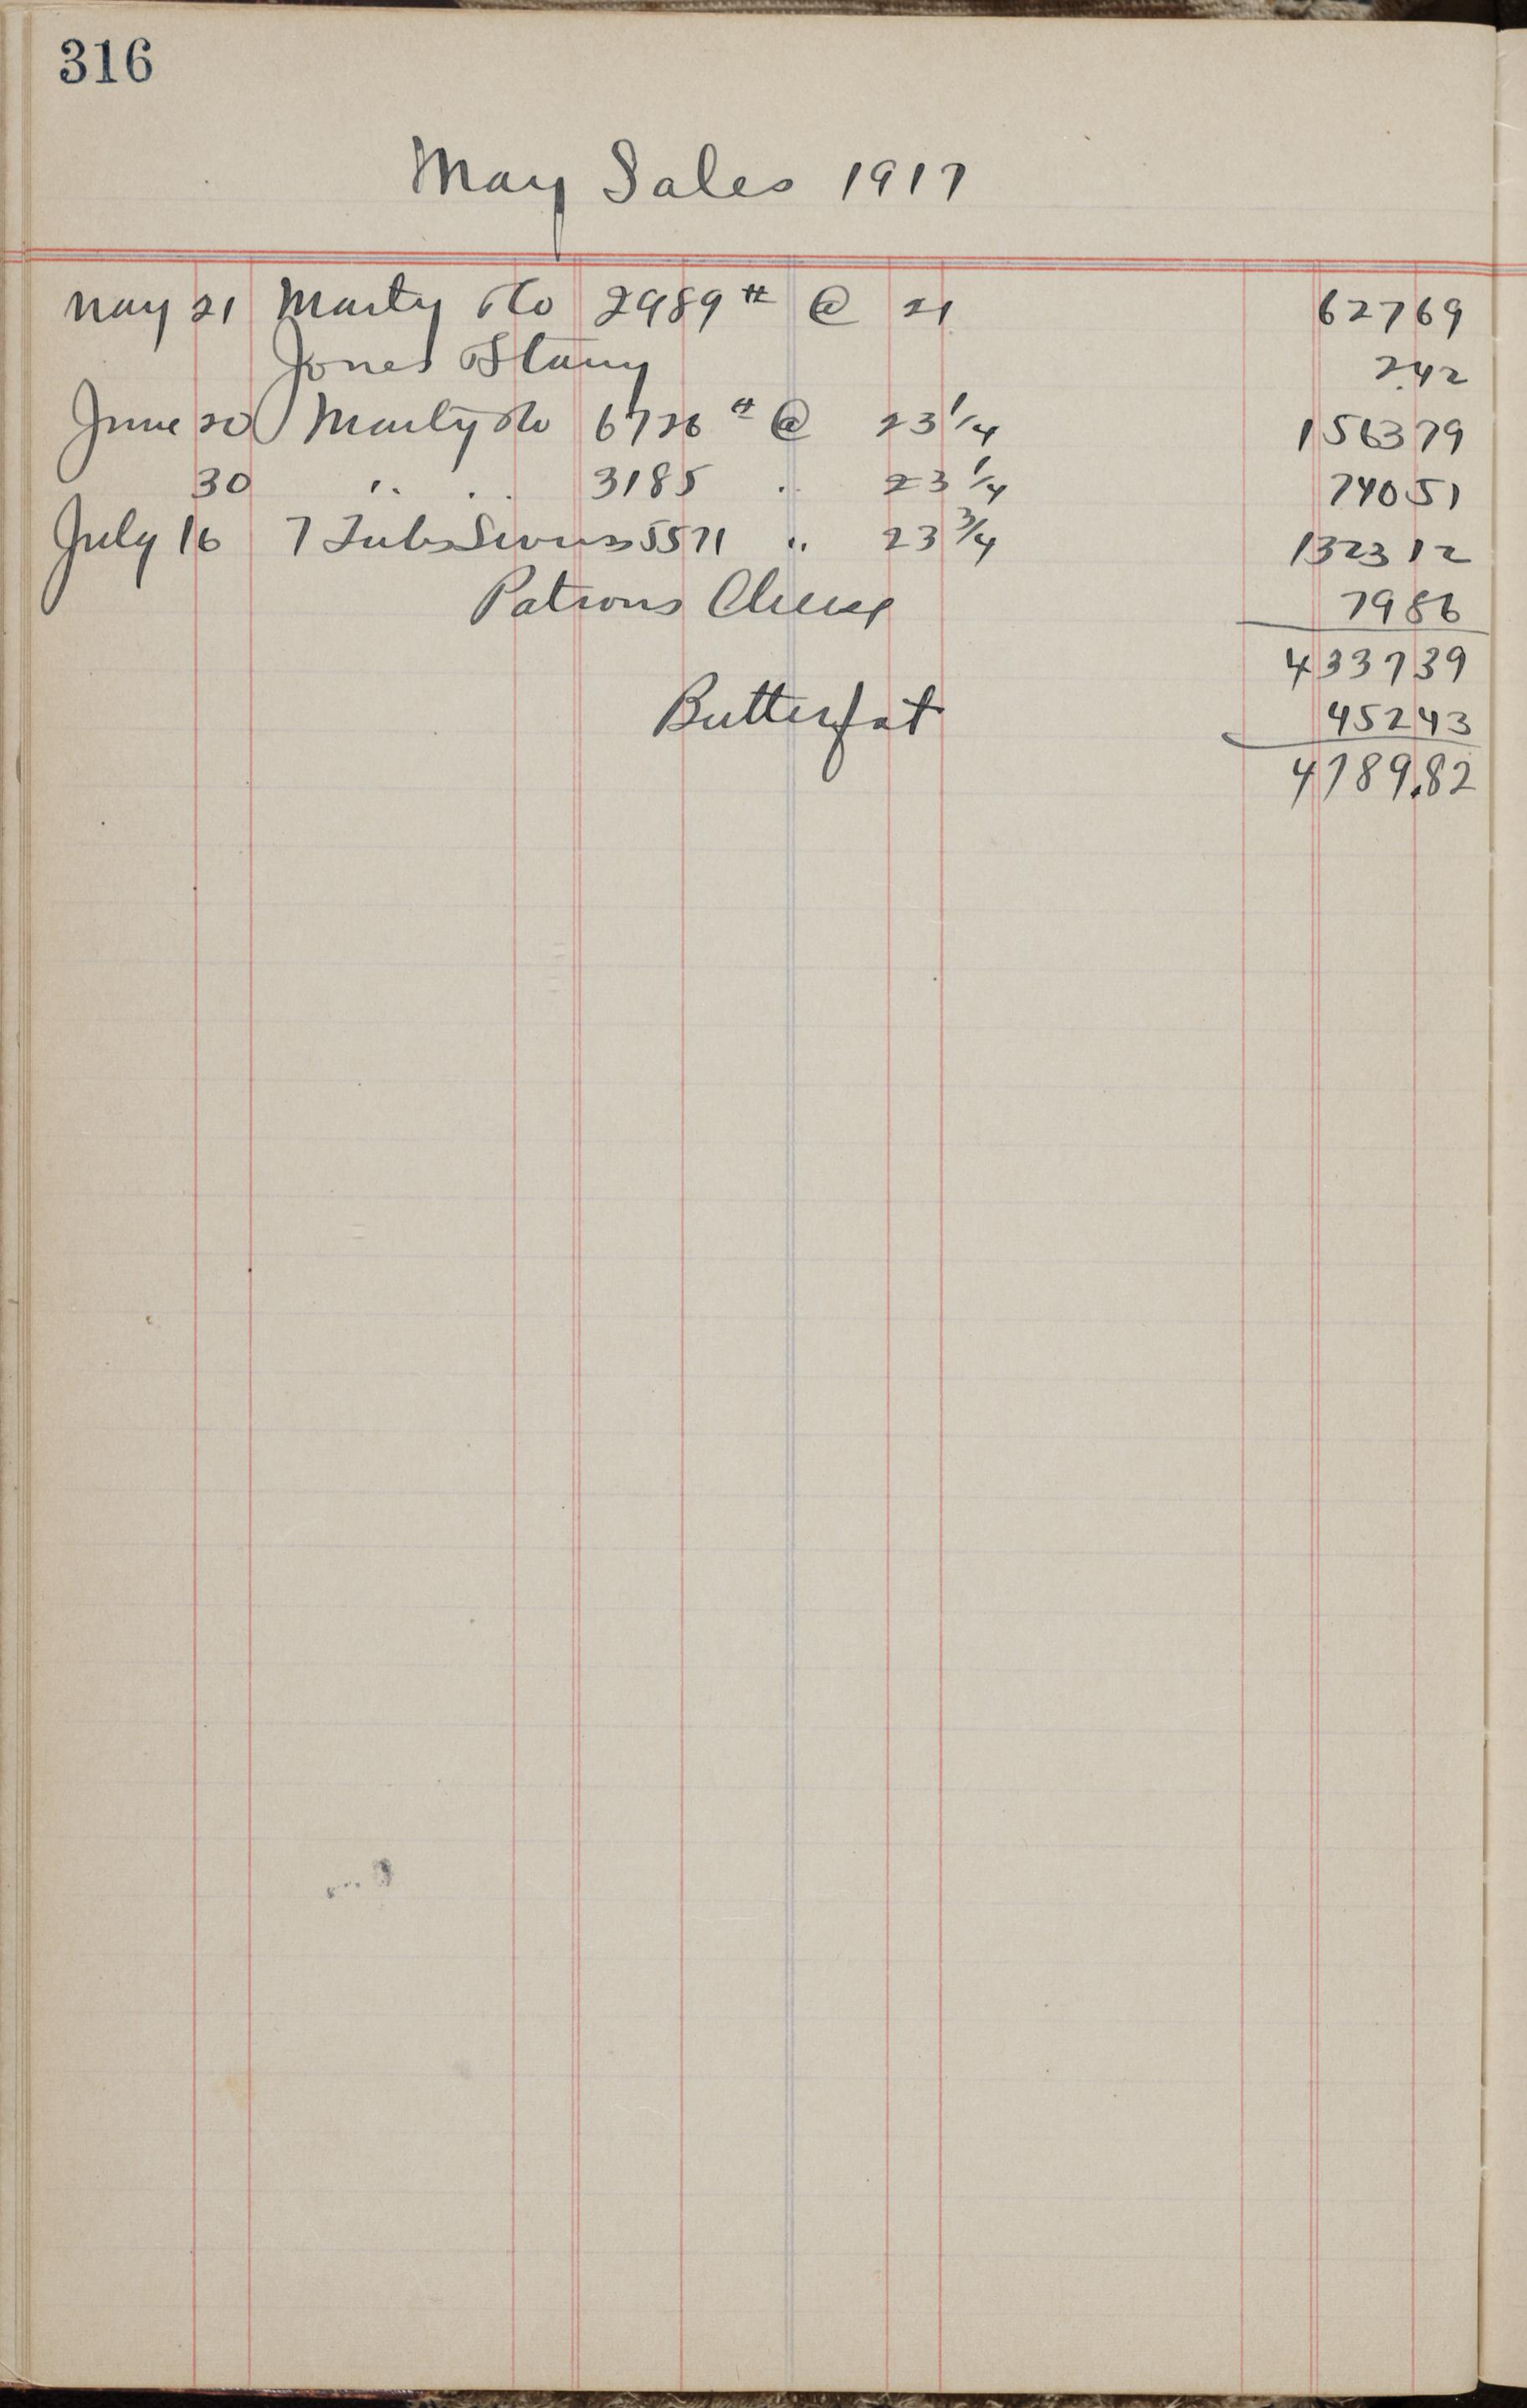 316
May Sales 1917
May 21 Marty & Co 2989 # @ 21 627 69
Jones 2.42
June 20 Marty & Co 6726 # @ 23 1/4 1563 79
30 " " 3185 " 23 1/4 740 51
July 16 7 Tubs Swiss 5571 " 23 3/4 1323 12
Patrons Cheese 79 86
4337 39
Butterfat 452 43
4789.82